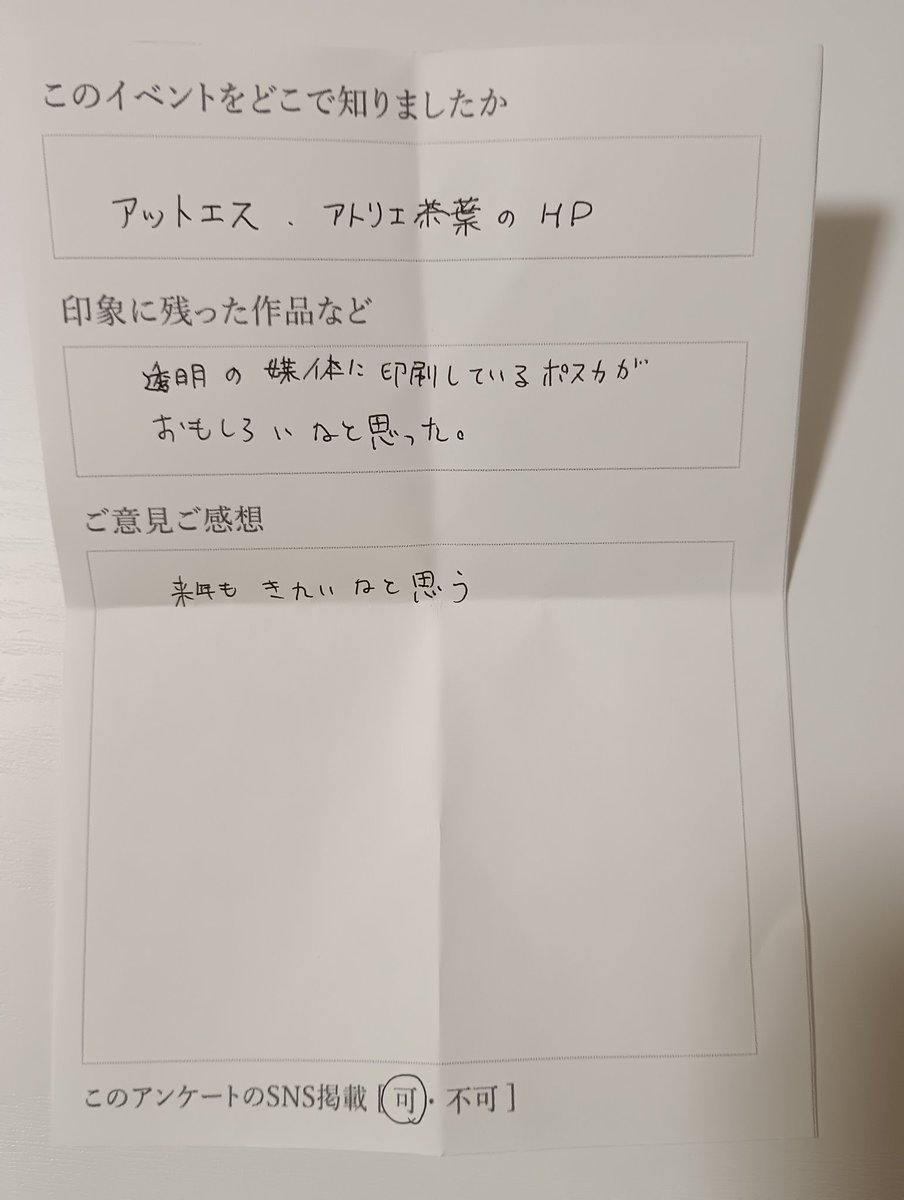 このイベントをどこで知りましたか
アットエス、アトリエ茶葉のHP
印象に残った作品など
透明の媒体に印刷しているポスカが
おもしろいなと思った。
ご意見ご感想
来年もきたいなと思う
このアンケートのSNS掲載［可・不可］